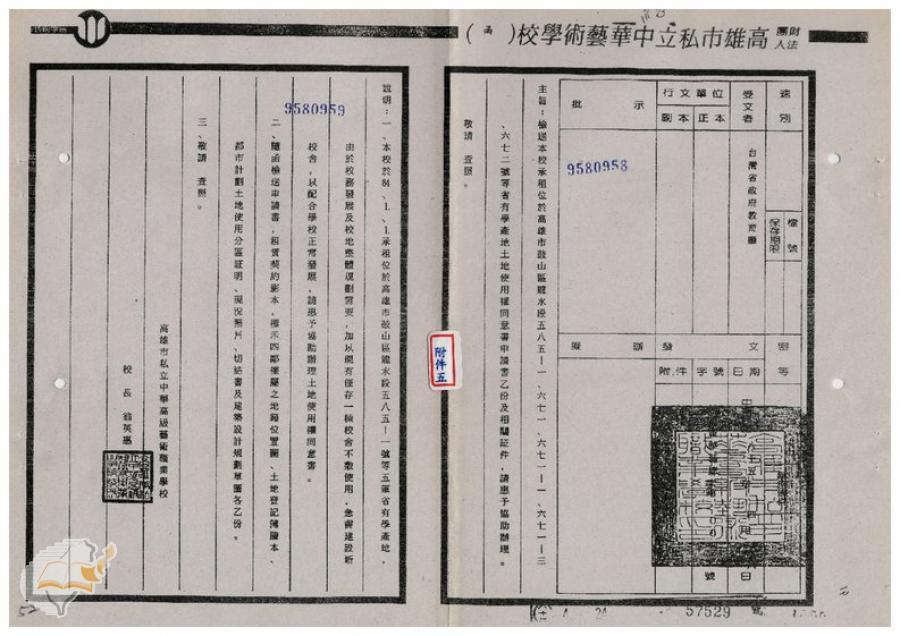 財團法人 高雄市私立中華藝術學校（函）
速別
受文者
台灣省政府教育廳
行文單位
正本
副本
批示
檔號
保存期限
密等
發文
日期
字號
附件
擬辦
號
日
9580958
主旨：檢送本校承租位於高雄市鼓山區龍水段五八五—一、六七一、六七一—一、六七一—三
、六七二號等省有學產地土地使用權同意書申請書乙份及相關証件，請惠予協助辦理。
敬請 查照。
附件五
9580959
說明：一、本校於84.1.1.承租位於高雄市鼓山區龍水段五八五—一號等五筆省有學產地，
由於校務發展及校地整體規劃需要，加以現有僅存一棟校舍不敷使用，急需建設新
校舍，以配合學校正常發展，請惠予協助辦理土地使用權同意書。
二、隨函檢送申請書，租賃契約影本，標示四鄰權屬之地籍位置圖、土地登記簿謄本、
都市計劃土地使用分區証明、現況照片、切結書及建築設計規劃草圖各乙份。
三、敬請 查照。
高雄市私立中華高級藝術職業學校
校長 翁英惠
52
4 24
57529 號